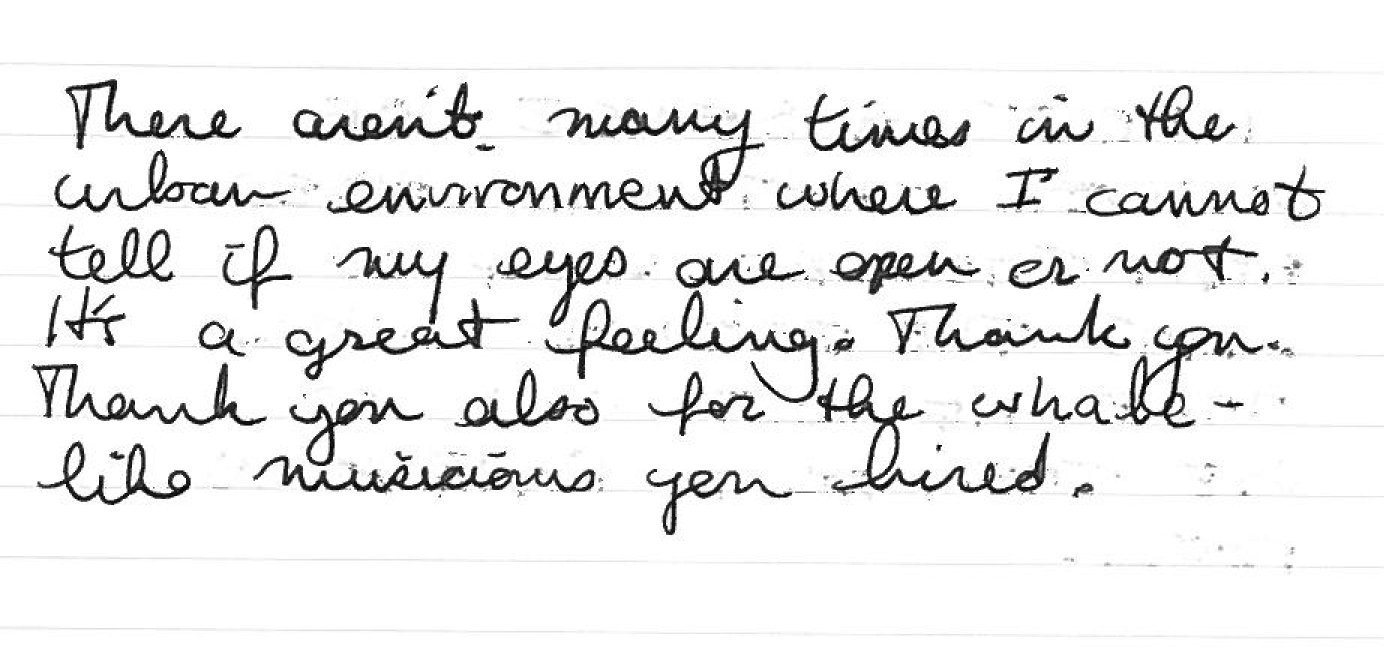 There aren't many times in the
urban environment where I cannot
tell if my eyes are open or not.
It's a great feeling. Thank you.
Thank you also for the whale-
like musicians you hired.